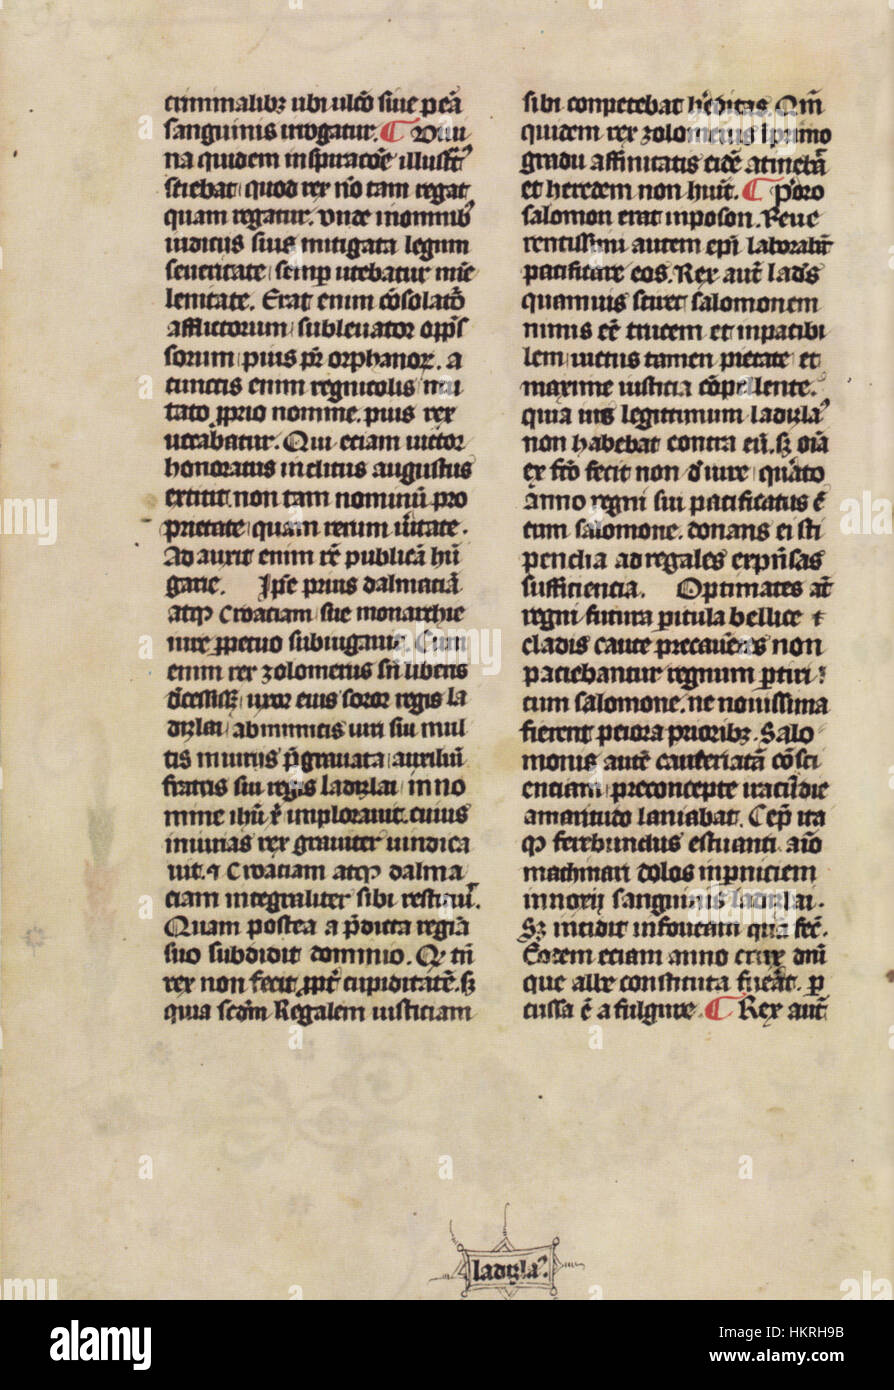 criminalibꝫ ubi ulcō siue pēa
sanguinis irrogatur. ¶ Diui
na quidem inspiracōe illustrat᷒
sciebat quod rex nō tam regat
quam regatur. vnde in omnib᷒
iudiciis suis mitigata legum
seueritate semꝑ utebatur mīe
lenitate. Erat enim cōsolatō
afflictorum subleuator opp̄s
sorum pius pr̄ orphanoꝝ. a
cunctis enim regnicolis mu
tato ꝓprio nomine. pius rex
vocabatur. Qui eciam uictor
honoratus inclitus augustus
extitit non tam nominū pro
prietate quam rerum ūitate.
Adauxit enim rē publicā hū
garie. Ip̄e prius dalmaciā
atqꝫ Croaciam sue monarchie
iure ꝑpetuo subiugauit. Cum
enim rex zolomerus sn̄ liberis
dēcessisꝫ uxor eius soror regis la
dizlai ab inimicis uiri sui mul
tis iniuriis p̄grauata auxiliū
fratris sui regis ladizlai in no
mine ihū x̄ implorauit. cuius
iniurias rex grauiter uindica
uit. ⁊ Croaciam atqꝫ dalma
ciam integraliter sibi restituit.
Quam postea a p̄dicta regīa
suo subdidit dominio. Qꝫ tn̄
rex non fecit ꝓpt̄ cupiditatē. sꝫ
quia secdm̄ Regalem iusticiam
sibi conpetebat hēditas. Qm̄
quidem rex zolomerus i primo
gradu affinitatis eidē atinebāt
et heredem non huit̄. ¶ Porro
salomon erat in poson. Reue
rentissimi autem ep̄i laborabāt
pacificare eos. Rex aut̄ lad᷒s
quamuis sciret salomonem
nimis eē trucem et inpacibi
lem uictus tamen pietate et
maxime iusticia cōpellente.
quia ius legittimum ladizla᷒
non habebat contra eū. sꝫ oīa
ex fc̄o fecit non d̄ iure quarto
anno regni sui pacificatus ē
cum salomone. donans ei sti
pendia ad regales expn̄sas
sufficiencia. Optimates aūt
regni futura pericula bellice ⁊
cladis caute precauentes non
paciebantur regnum partiri
cum salomone. ne nouissima
fierent peiora prioribꝫ. Salo
monis autē cauteriatā cōsci
enciam preconcepte iracūdie
amaritudo laniabat. Cepit ita
qꝫ feribundus estuanti aīo
machinari dolos in ꝑniciem
innoxij sanguinis ladizlai.
Sꝫ incidit in foueam quā fec̄.
Eodem eciam anno crux dn̄i
que albe constituta fuerat. ꝑ
cussa ē a fulgure. ¶ Rex aut̄
ladizla᷒.
alamy
Image ID: HKRH9B
www.alamy.com